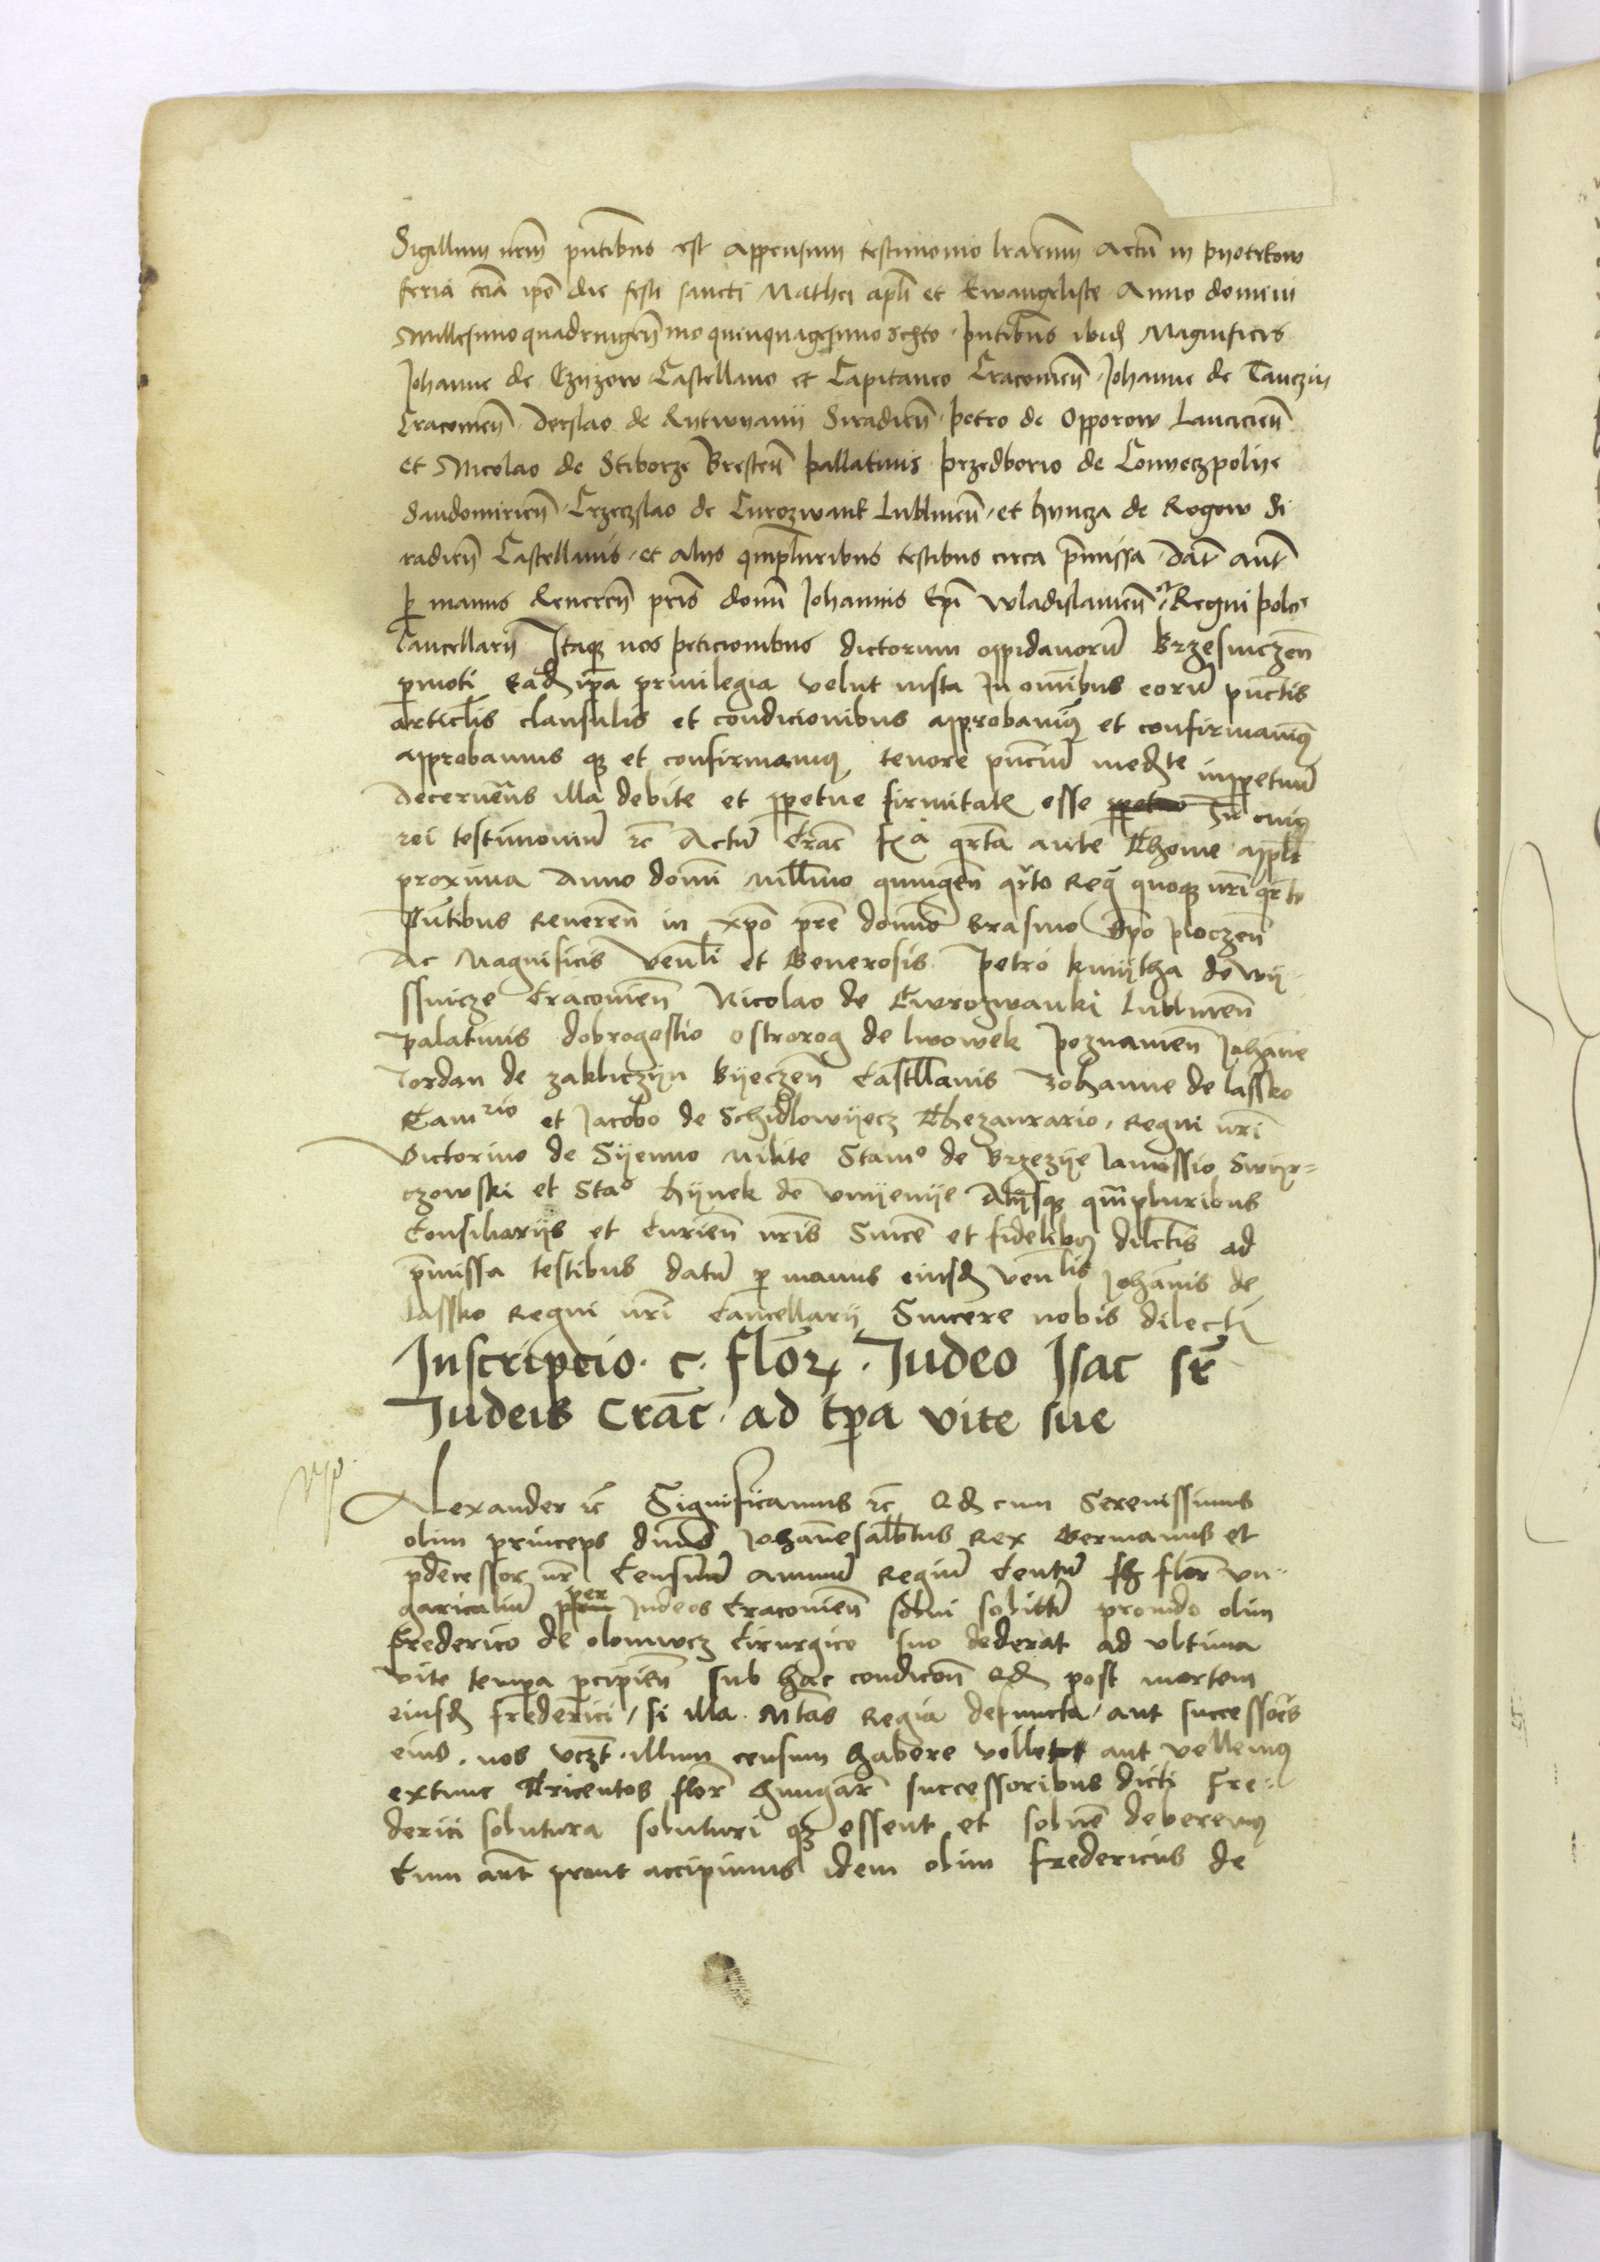 Sigillum nrm̄ pn̄tibus est appensum testimonio lrarum Actū in pyotrkow
feria tcīa ip̄o die festi sancti Mathei apl̄i et Ewangeliste Anno domini
Millesimo quadringen̄mo quinquagesimo octo · pn̄tibus ibidē Magnificis
Johanne de Czyzow Castellano et Capitaneo Cracouien̄ · Johanne de Tanczin
Cracouien̄ · Derslao de Rytwyany Siradien̄ · petro de Opporow Lancicien̄
et Nicolao de Sciborze Bresten̄ pallatinis przedborio de Conyeczpolye
Sandomirien̄ · Crzeczslao de Curozwank Lublinen̄ · et hyncza de Rogow Si
radien̄ Castellanis · et alys qmpluribus testibus circa p̄missa · Dat̄ aut̄
ꝑ manus Reueren̄ pr̄is domī Johannis Ep̄i Wladislauien̄ et Regni polo⁰
Cancellarij Itaqꝫ nos peticionibus dictorum oppidanorū Brzesniczen̄
ꝑmoti Eadē ip̄a priuilegia velut iusta In om̄ibus eorū punctis
articl̄is clausulis et condicionibus approbamꝰ et confirmamꝰ
approbamus qꝫ et confirmamꝰ tenore pn̄ciū med̄te inꝑpetuū
Decernen̄s illa debite et ꝑpetue firmitatꝭ esse In cuiꝰ
rei testimoniū ꝛc̄ Actū Crac̄ f\xa0ia qrta ante Thome appl̄i
proxima Anno domī millīmo quingen̄ qr̄to Regꝭ quoqꝫ nr̄i qr̄to
Pn̄tibus Reueren̄ in xp̄o pr̄e domīo Erasmo Ep̄o ploczen̄
Ac Magnificis Ven̄li et Generosis petro kmytha de wy
ssnicze Cracouien̄ Nicolao de Curozwanki Lublinen̄
palatinis dobrogostio ostrorog de lwowek poznanien̄ Johān̄e
Jordan de zakliczyn Byeczen̄ Castll̄anis Johanne de lassko
Canrio et Jacobo de Schidlowyecz Thezaurario Regni nr̄i
Victorino de Syenno milite Stan⁰ de Brzezye Janussio Swyr=
czowski et Sta⁰ hynek de vnyenye Alijsqꝫ qm̄pluribus
Consiliarijs et Curien̄ nr̄is Sincē et fidelibꝰ dilc̄tis ad
p̄missa testibus datū ꝑ manus eiusdē venlis Johān̄is de
lassko Regni nr̄i Cancellarij Sincere nobis dilecti
Inscripcio · c · flor̄ꝫ · Judeo Isac sr̄
Judeis Crac̄ · ad tp̄a vite sue
Alexander ꝛc̄ Significamus ꝛc̄ Qd̄ cum Serenissimus
olim princeps dn̄us Johān̄esalb̄tus Rex Germanus et
p̄decessor nr̄ Censum annuū Regiū Centū flor̄ vn-
garicaliū per Judeos Cracouien̄ solui solitū prouido olim
Frederico de olomucz Cirurgico suo dederat ad vltima
vite tempa ꝑcipien̄ sub hac condicōn̄ Qd̄ post mortem
eiusdē frederici / si illa · Mtās Regia defuncta / aut successōes
eius · nos vcꝫt · illum censum habere vellet aut vellemꝰ
extunc Tricentos flor̄ hungar̄ successoribus dicti Fre-
derici solutura soluturi qꝫ essent et soluē deberemꝰ
Cum aut̄ prout accipimus idem olim Fredericus de